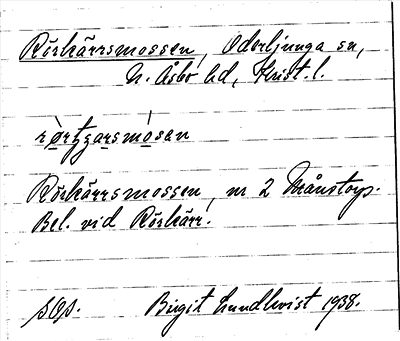 Rörkärrsmossen, Oderljunga sn,
N. Åsbo hd, Krist. l.
Rörkärrsmossen, nr 2 Månstorp.
Bel. vid Rörkärr.
sgs. Birgit Lundkvist 1938.